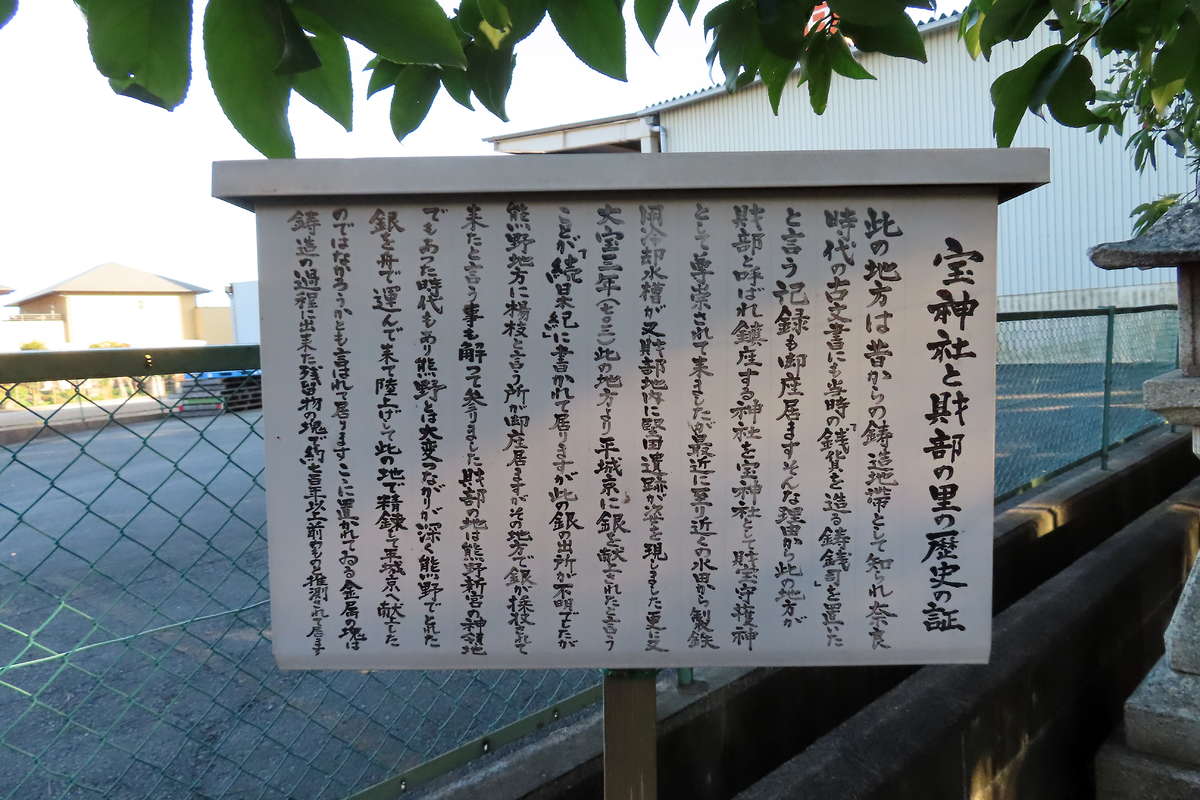 宝神社と財部の里の歴史の証
此の地方は昔からの鋳造地帯として知られ奈良
時代の古文書にも当時の「銭貨を造る鋳銭司」を置いた
と言う記録も御座居ますそんな理由から此の地方が
財部と呼ばれ鎮座する神社を宝神社として財宝守護神
として尊崇されて来ましたが最近に至り近くの水田から製鉄
用冷却水槽が又財部地内に堅田遺跡が姿を現しました更に又
大宝三年(七〇三)此の地方より平城京に銀を献上されたと言う
ことが「続日本紀」に書かれて居りますが此の銀の出所が不明でしたが
熊野地方に楊枝と言う所が御座居ますがその地方で銀が採ききれて
来たと言う事も解って参りました財部の地は熊野新宮の神領地
でもあった時代もあり熊野とは大変つながりが深く熊野でとれた
銀を舟で運んで来て陸上げして此の地で精錬して平城京へ献上した
のではなかろうかとも言はれて居ります ここに置かれてゐる金属の塊は
鋳造の過程に出来た残留物の塊で約壱千年以上前のものと推測されて居ます